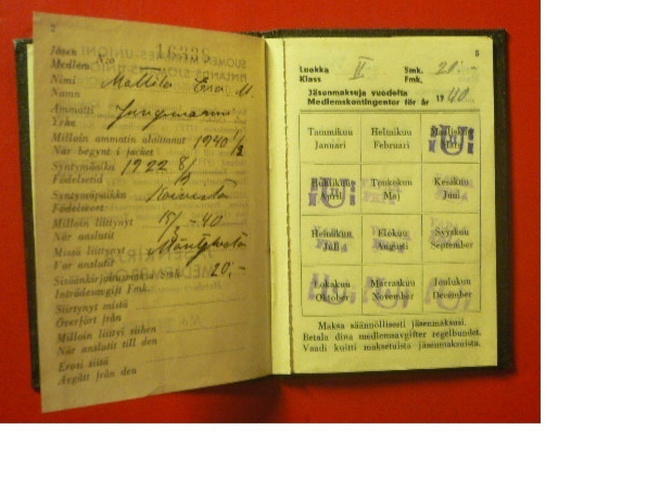 2
Jäsen
Medlem N:o 16338
Nimi
Namn Mattila Esa M.
Ammatti
Yrke Jungmanni
Milloin ammatin aloittanut 1940 1/3
När begynt i facket
Syntymäaika 1922 8/
Födelsetid
Syntymäpaikka Koivisto
Födelseort
Milloin liittynyt 15/ -40
När anslutit
Missä liittynyt Mäntyluoto
Var anslutit
Sisäänkirjoitusmaksu Smk. 20:-
Inträdesavgift Fmk.
Siirtynyt mistä
Överfört från
Milloin liittyi siihen
När anslutit till den
Erosi siitä
Avgått från den
5
Luokka II Smk. 20:-
Klass Fmk.
Jäsenmaksuja vuodelta
Medlemskontingenter för år 1940
Tammikuu Helmikuu Maaliskuu
Januari Februari Mars
Huhtikuu Toukokuu Kesäkuu
April Maj Juni
Heinäkuu Elokuu Syyskuu
Juli Augusti September
Lokakuu Marraskuu Joulukuu
Oktober November December
Maksa säännöllisesti jäsenmaksusi.
Betala dina medlemsavgifter regelbundet.
Vaadi kuitti maksetuista jäsenmaksuista.